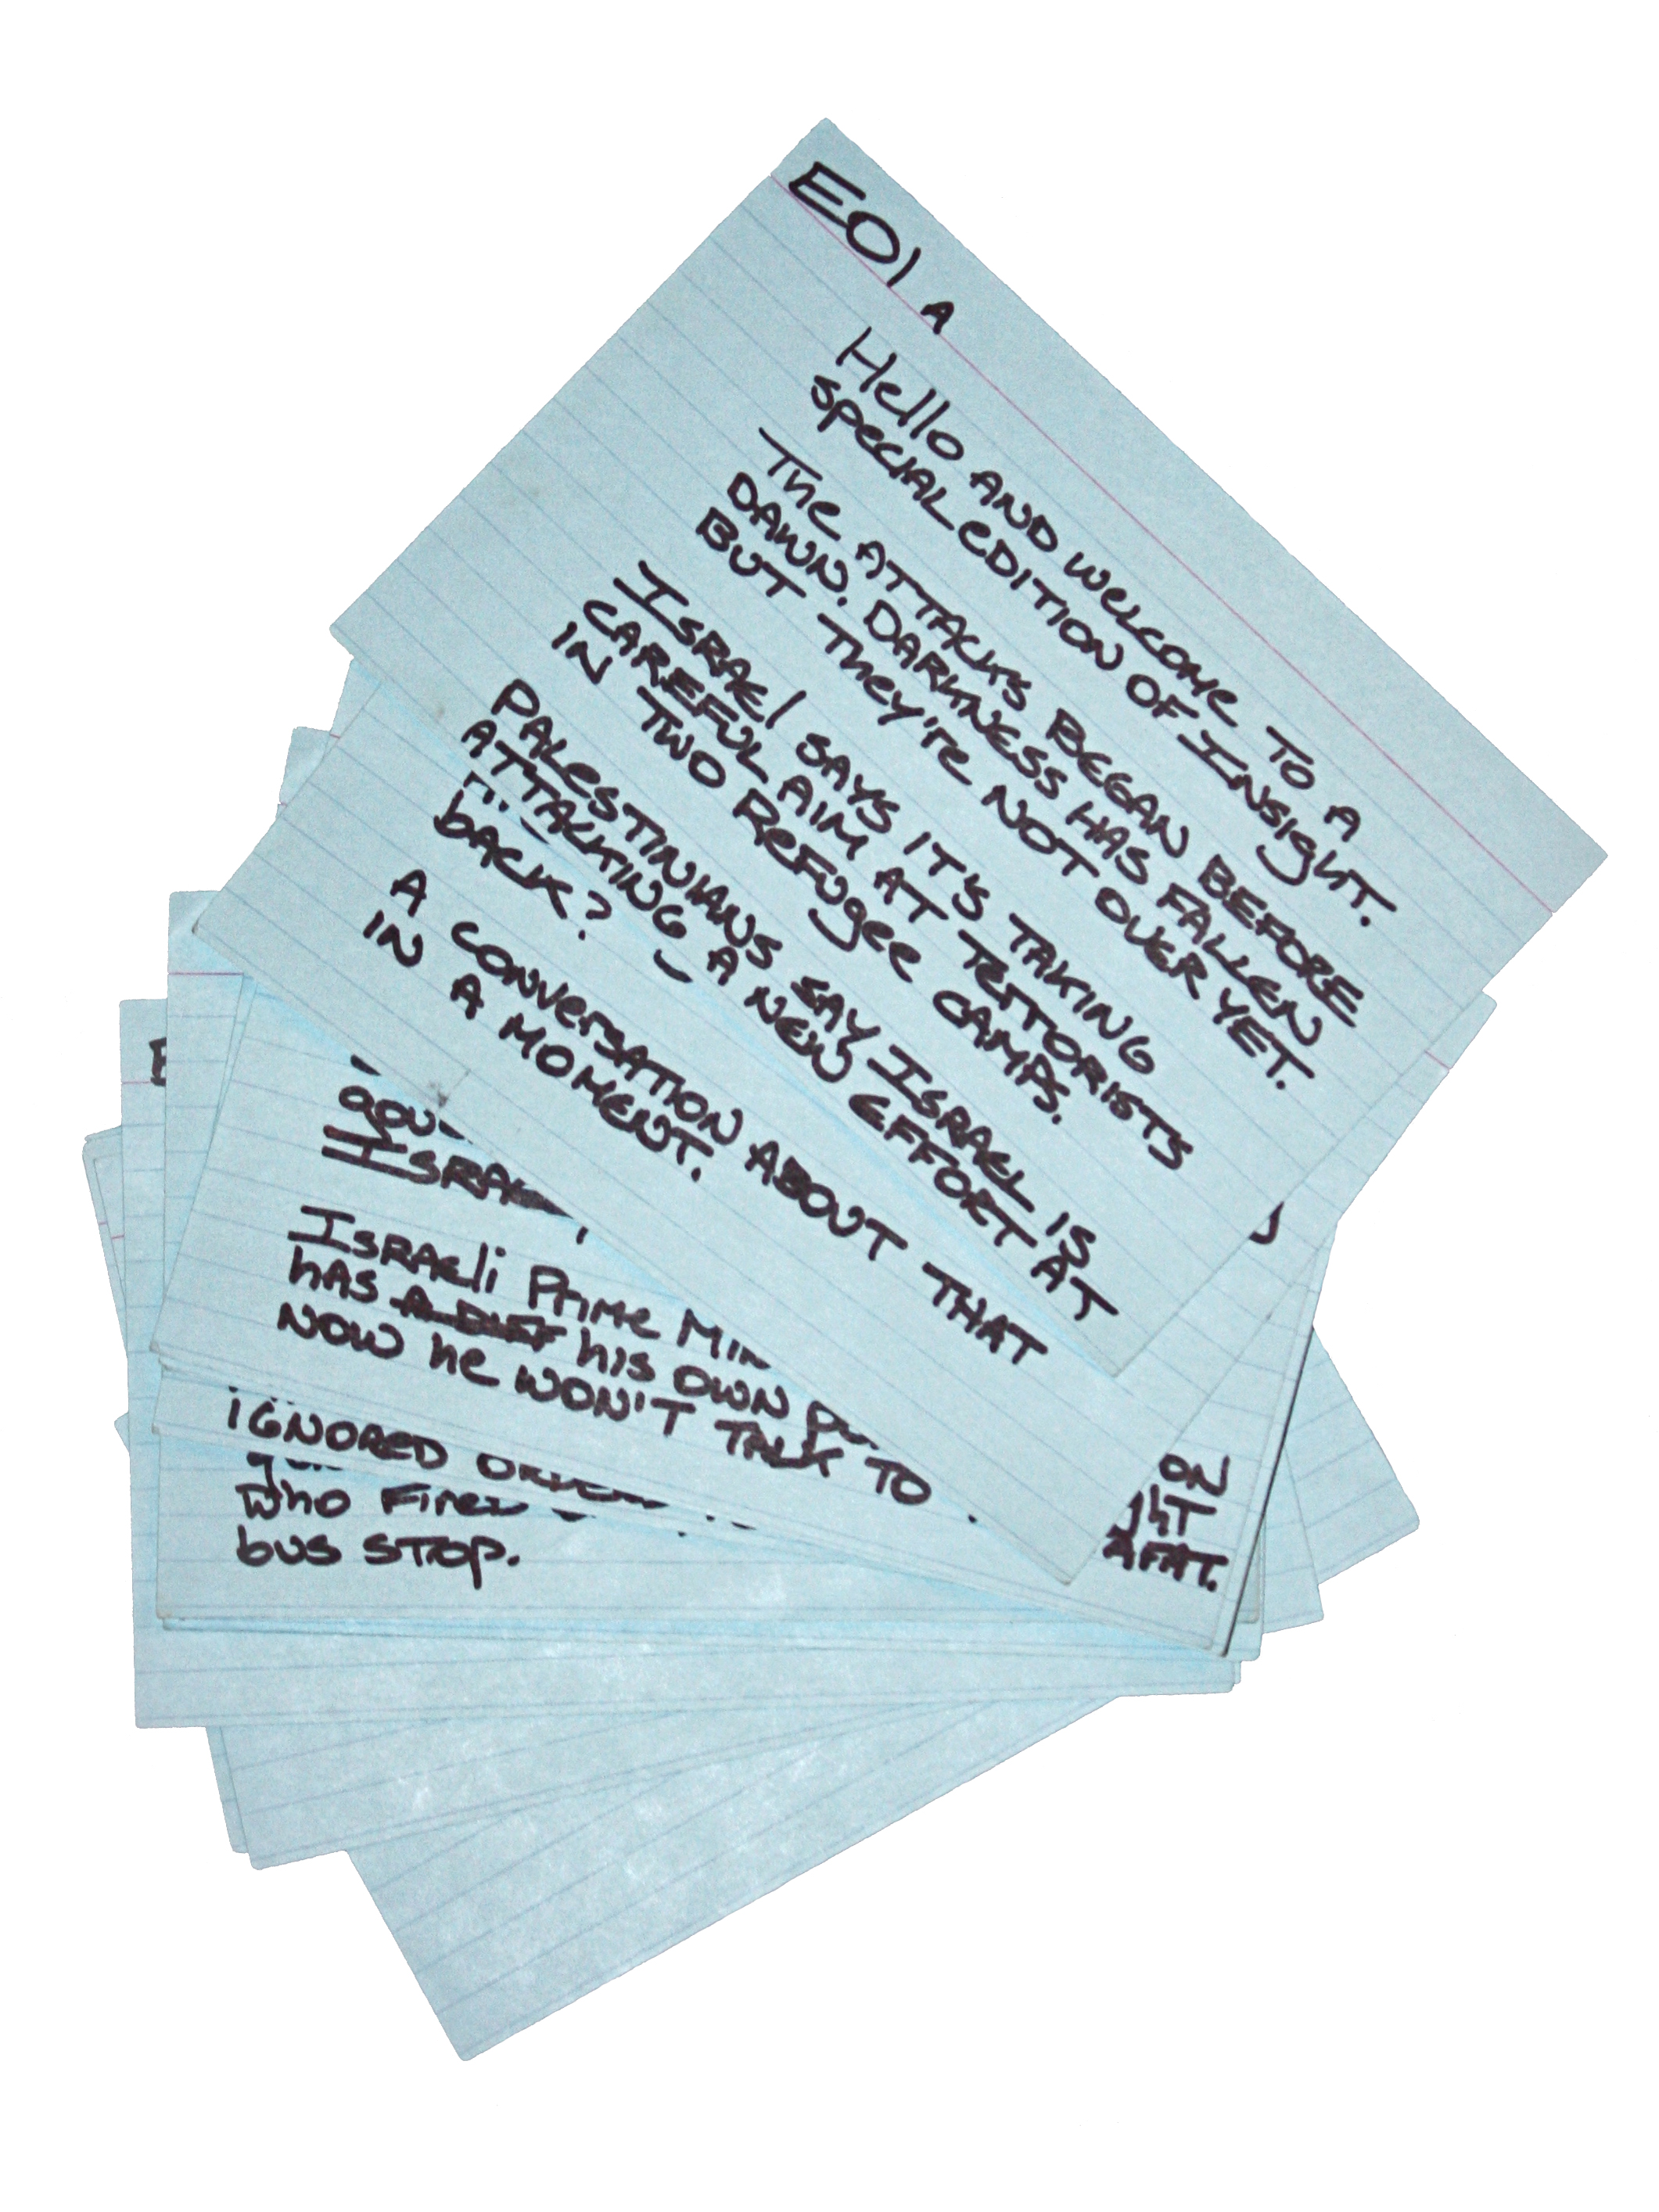 E01 A
Hello AND WELCOME TO A
SPECIAL EDITION OF INSIGHT.
The ATTACKS BEGAN BEFORE
DAWN. DARKNESS HAS FALLEN
BUT THEY're NOT OVER YET.
ISRAEl SAYS IT'S TAKING
CAREFUL AIM AT TERRORISTS
IN TWO REFUgee CAMPS.
PALESTINIANS SAY ISRAEL IS
ATTACKING A NEW EFFORT AT
back?
A CONVERSATION ABOUT THAT
IN A MOMENT.
ISRAEli Prime
hAS his OWN
NOW he WON'T TALK TO
IGNORED
who Fired
bus STOP.
ON